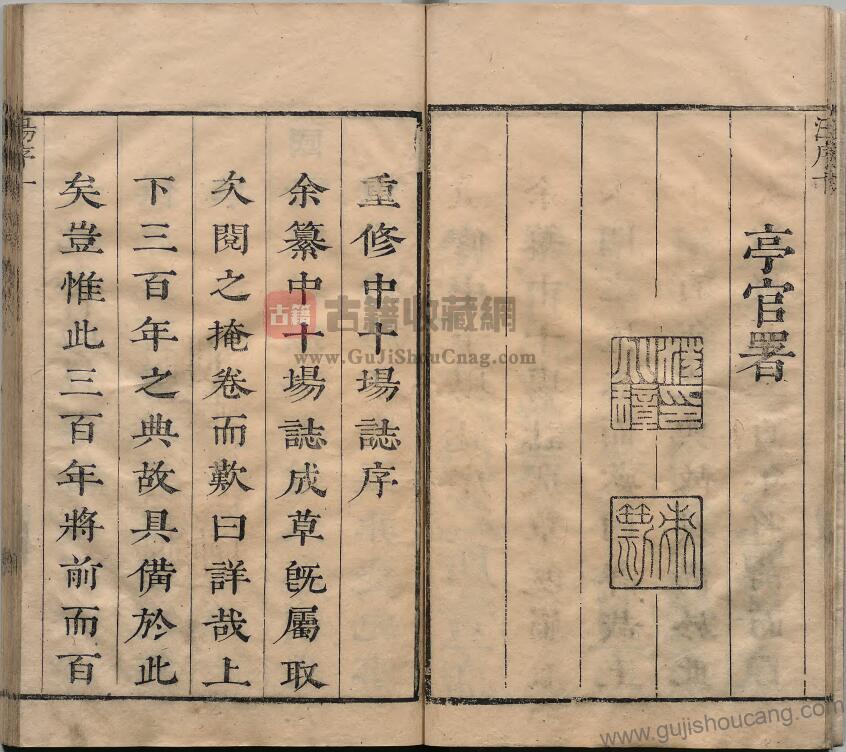 亭官署
重修中十場誌序
余纂中十場誌成草旣屬取
次閱之掩卷而歎曰詳哉上
下三百年之典故具備於此
矣豈惟此三百年將前而百
古籍
古籍收藏網
www.GuJiShouCnag.com
www.gujishoucang.com